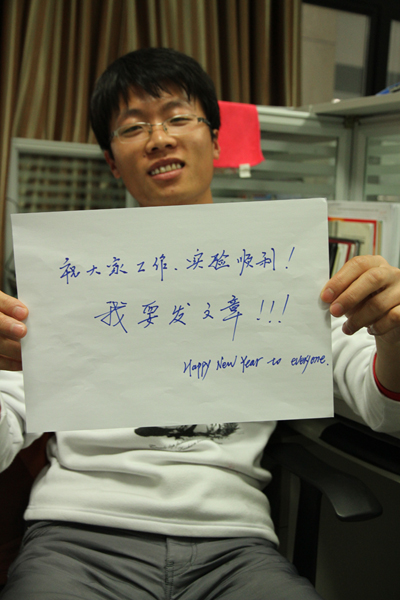 祝大家工作、实验顺利!
我要发文章!!!
Happy New Year to everyone.